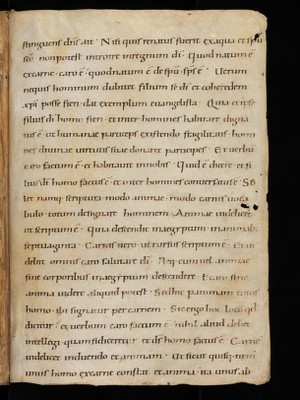 stinguens dns ait · Nisi quis renatus fuerit ex aqua et spu
sco non potest introire in regnum di · Quod natum ē
ex carne · caro ē · quod natum ē de spu · sps ē · Uerum
ne quis hominum dubitet filium se di et coheredem
xpi posse fieri · dat exemplum euangelista · Quia et ipse
filius di homo fieri · et inter homines habitare digna
tus ē · ut humanae particeps existendo fragilitatis · homi
nes diuinae uirtutis suae donaret participes · Et uerbū
caro factum ē · et habitauit in nobis · Quid ē dicere · et fi
lius di homo factus ē · et inter homines conuersatus ē · So
let namq; scriptura · modo animae · modo carnis uoca
bulo · totum designare hominem · Animae uidelicet
ut scriptum ē · Quia descendit in aegyptum in animab;
septuaginta · Carnis uero · ut rursus scriptum ē · Et ui
debit omnis caro salutare di · Neq; enim uel animae
sine corporibus in aegyptum descendere · t caro sine
anima uidere aliquid potest · Sed hic per animam totus
homo · ibi signatur per carnem · Sic ergo hoc loco qd
dicitur · et uerbum caro factum ē · nihil aliud debet
intellegi · quam si diceretur · et ds homo factus ē · Carnē
uidelicet induendo et animam · Ut sicut quisq; nrm
unus homo ex carne constat et anima · ita unus ab